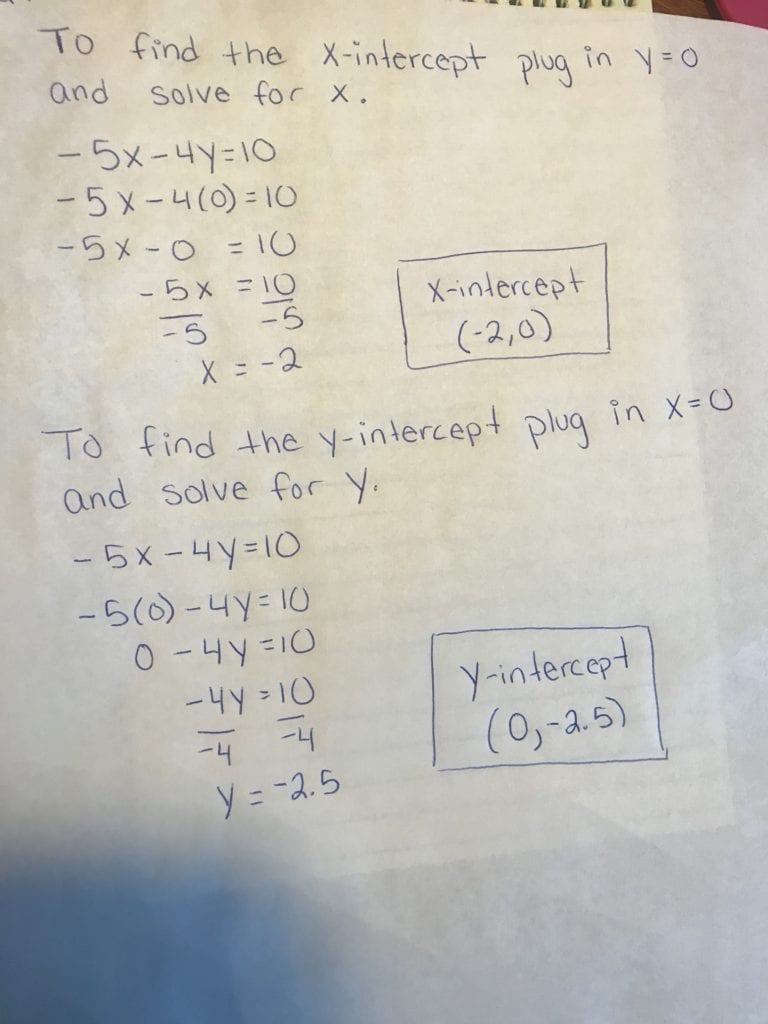 To find the x-intercept plug in y=0
and solve for x.
-5x-4y=10
-5x-4(0)=10
-5x-0 =10
-5x =10
-5 -5
x = -2
x-intercept
(-2,0)
To find the y-intercept plug in x=0
and solve for y.
-5x-4y=10
-5(0)-4y=10
0 -4y=10
-4y=10
-4 -4
y = -2.5
y-intercept
(0,-2.5)